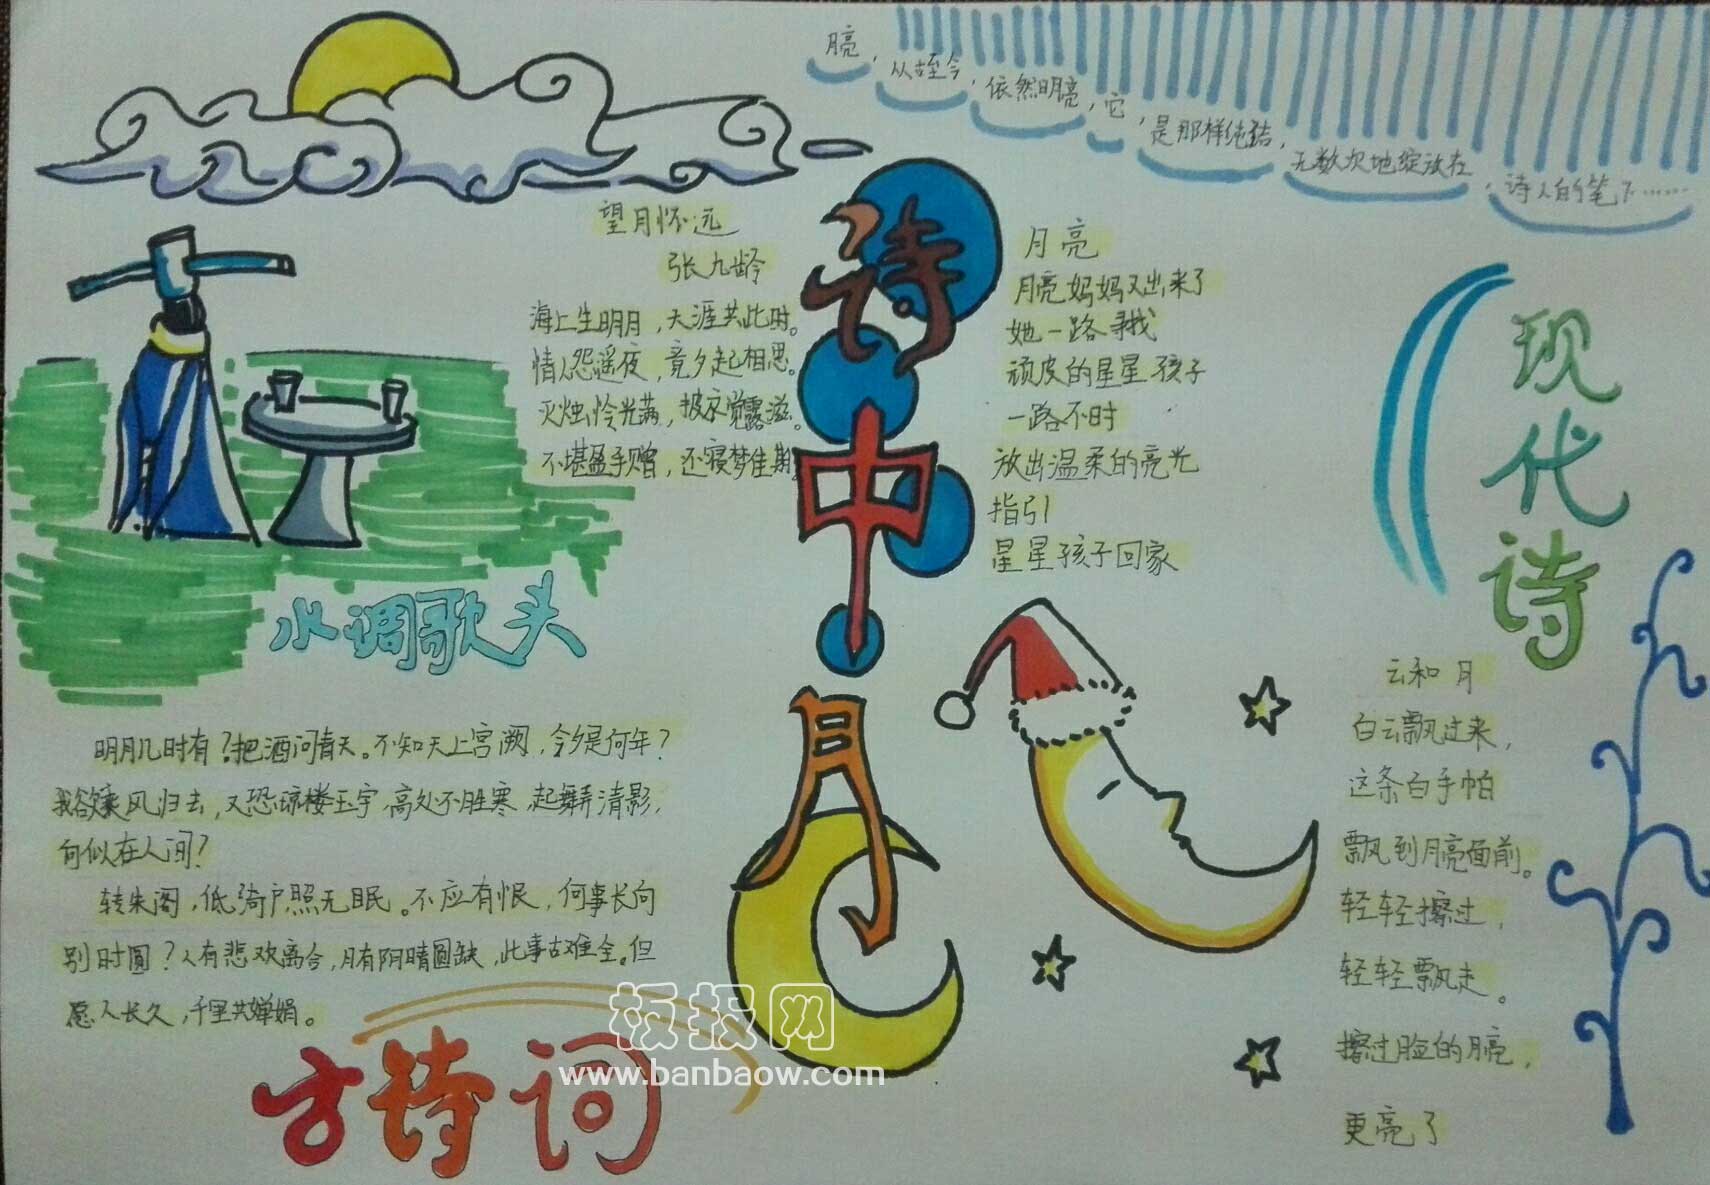 月亮,从古至今,依然明亮,它,是那样纯洁,无数次地绽放在,诗人的笔下……
诗中月
望月怀远
张九龄
海上生明月,天涯共此时。
情人怨遥夜,竟夕起相思。
灭烛怜光满,披衣觉露滋。
不堪盈手赠,还寝梦佳期。
水调歌头
明月几时有?把酒问青天。不知天上宫阙,今夕是何年?
我欲乘风归去,又恐琼楼玉宇,高处不胜寒,起舞弄清影,
何似在人间?
转朱阁,低绮户,照无眠。不应有恨,何事长向
别时圆?人有悲欢离合,月有阴晴圆缺,此事古难全。但
愿人长久,千里共婵娟。
古诗词
月亮
月亮妈妈又出来了
她一路寻找
顽皮的星星孩子
一路不时
放出温柔的亮光
指引
星星孩子回家
现代诗
云和月
白云飘过来,
这条白手帕
飘到月亮面前。
轻轻擦过,
轻轻飘走。
擦过脸的月亮,
更亮了
板报网
www.banbaow.com